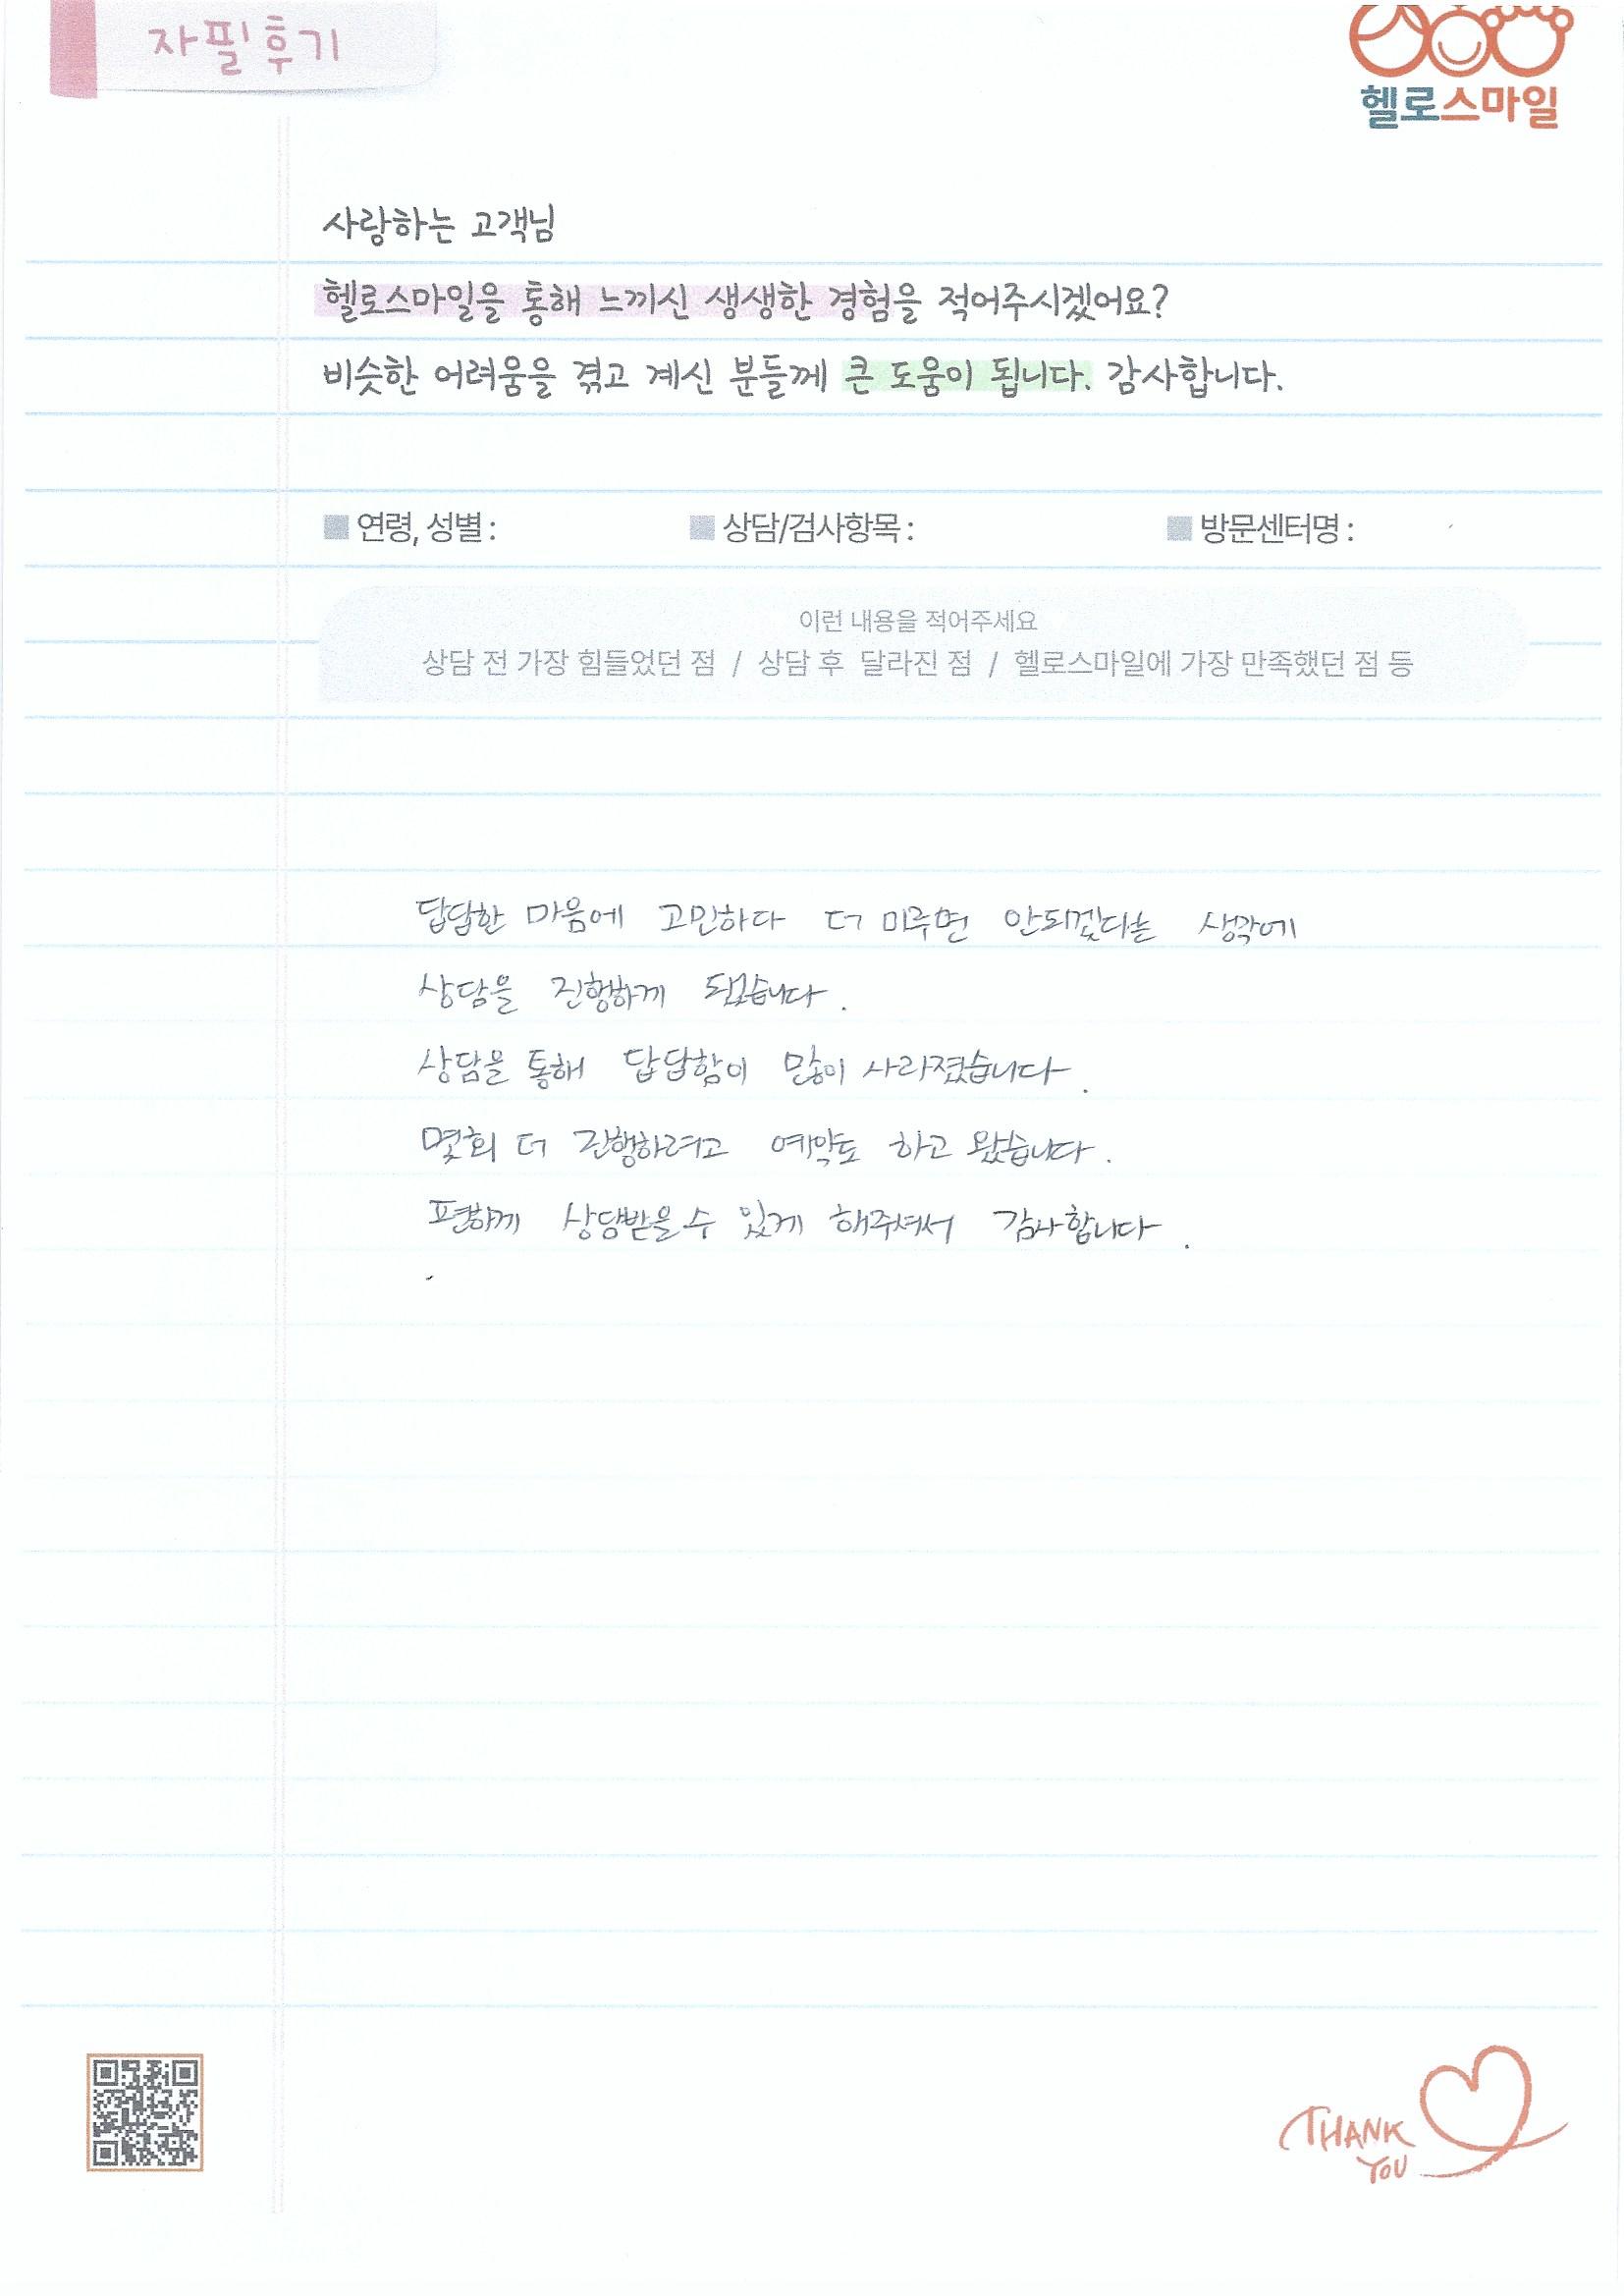 자필후기
헬로스마일
사랑하는 고객님
헬로스마일을 통해 느끼신 생생한 경험을 적어주시겠어요?
비슷한 어려움을 겪고 계신 분들께 큰 도움이 됩니다. 감사합니다.
■ 연령, 성별 : ■ 상담/검사항목 : ■ 방문센터명 :
이런 내용을 적어주세요
상담 전 가장 힘들었던 점 / 상담 후 달라진 점 / 헬로스마일에 가장 만족했던 점 등
답답한 마음에 고민하다 더 미루면 안되겠다는 생각에
상담을 진행하게 됐습니다.
상담을 통해 답답함이 많이 사라졌습니다.
몇회 더 진행하려고 예약도 하고 왔습니다.
편하게 상담받을 수 있게 해주셔서 감사합니다.
THANK
YOU